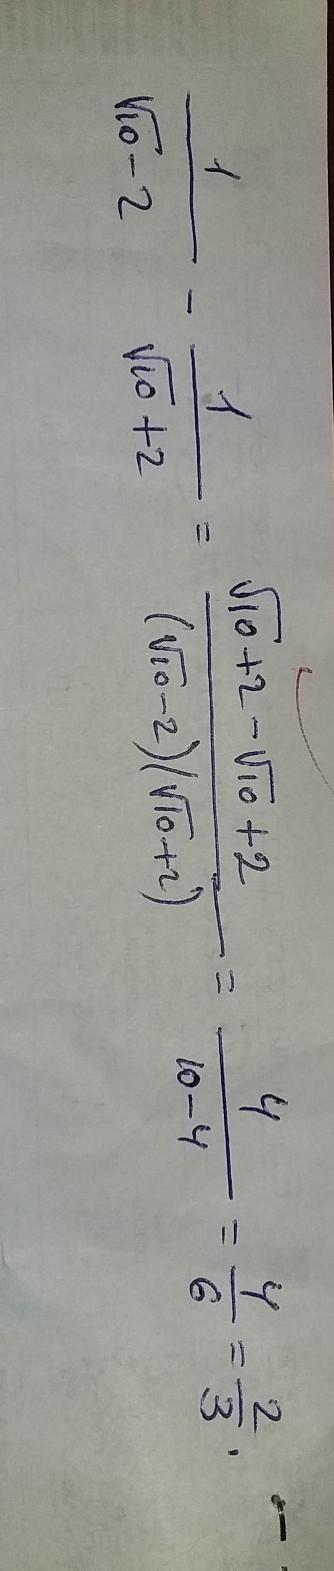 \frac{1}{\sqrt{10}-2} - \frac{1}{\sqrt{10}+2} = \frac{\sqrt{10}+2-\sqrt{10}+2}{(\sqrt{10}-2)(\sqrt{10}+2)} = \frac{4}{10-4} = \frac{4}{6} = \frac{2}{3}.